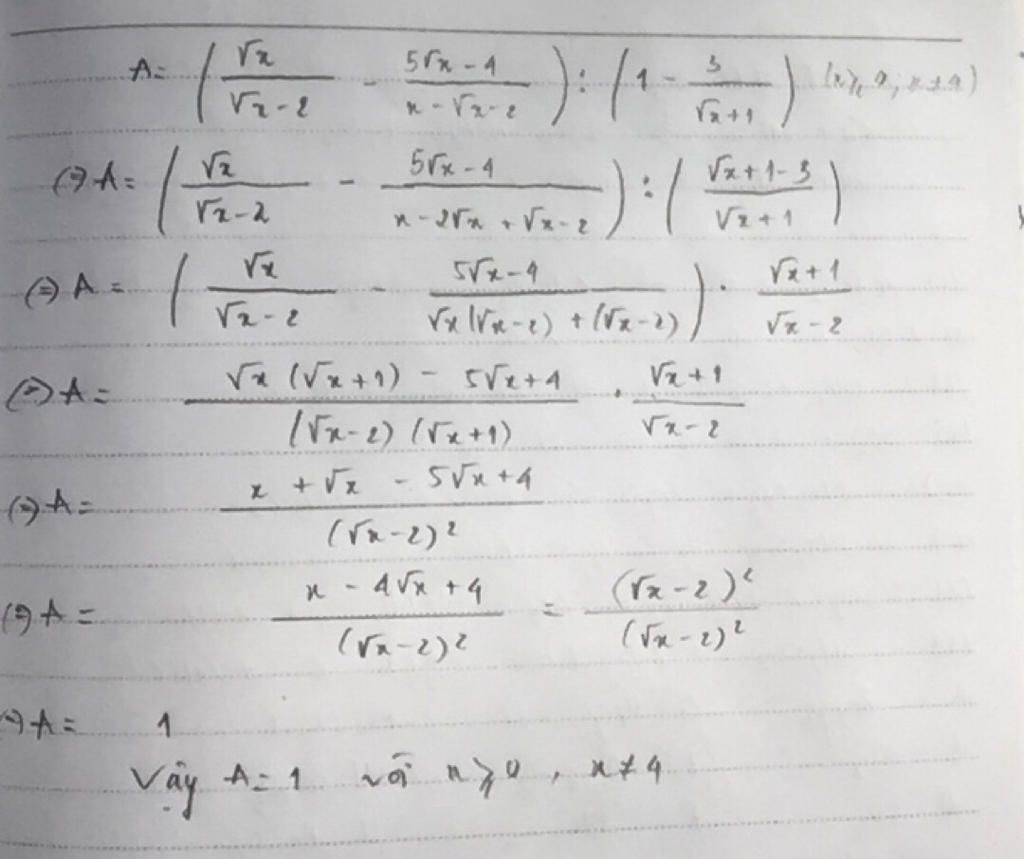 A = ( √x / (√x - 2) - (5√x - 4) / (x - √x - 2) ) : ( 1 - 3 / (√x + 1) ) (x ≥ 0; x ≠ 4)
(=) A = ( √x / (√x - 2) - (5√x - 4) / (x - 2√x + √x - 2) ) : ( (√x + 1 - 3) / (√x + 1) )
(=) A = ( √x / (√x - 2) - (5√x - 4) / (√x (√x - 2) + (√x - 2)) ) . (√x + 1) / (√x - 2)
(=) A = (√x (√x + 1) - 5√x + 4) / ((√x - 2) (√x + 1)) . (√x + 1) / (√x - 2)
(=) A = (x + √x - 5√x + 4) / (√x - 2)²
(=) A = (x - 4√x + 4) / (√x - 2)² = (√x - 2)² / (√x - 2)²
(=) A = 1
Vậy A = 1 với x ≥ 0, x ≠ 4